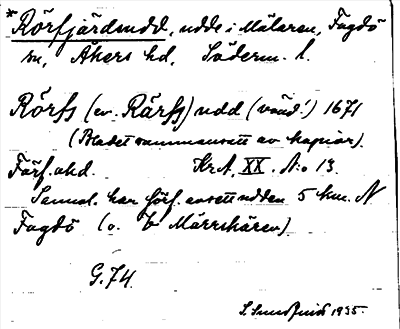 * Rörfjärdsudd, udde i Mälaren, Fogdö
sn, Åkers hd, Söderm. l.
Rörfs (ev. Rärfs) udd (vänd!) 1671
(Bladet sammansatt av kopior).
Förf. okd. Kr.A. XX. N:o 13.
Sannol. har förf. avsett udden 5 km. N
Fogdö (o. b Märrskären)
G.74.
1935.